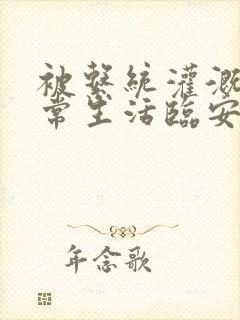 被繫統灌溉
常生活臨安
年念歌